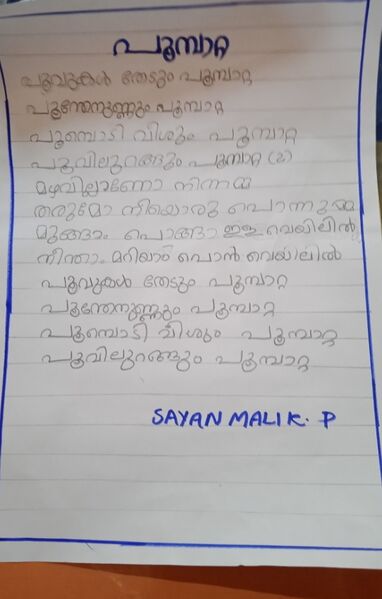 പൂമ്പാറ്റ
പൂവുകൾ തേടും പൂമ്പാറ്റ
പൂന്തേനുണ്ണും പൂമ്പാറ്റ
പൂമ്പൊടി വീശും പൂമ്പാറ്റ
പൂവിലുറങ്ങും പൂമ്പാറ്റ (2)
മഴവില്ലാണോ നിന്നമ്മ
തരുമോ നീയൊരു പൊന്നുമ്മ
മുങ്ങാം പൊങ്ങാം ഈ വെയിലിൽ
നീന്താം മറിയാം പൊൻ വെയിലിൽ
പൂവുകൾ തേടും പൂമ്പാറ്റ
പൂന്തേനുണ്ണും പൂമ്പാറ്റ
പൂമ്പൊടി വീശും പൂമ്പാറ്റ
പൂവിലുറങ്ങും പൂമ്പാറ്റ
SAYAN MALIK. P